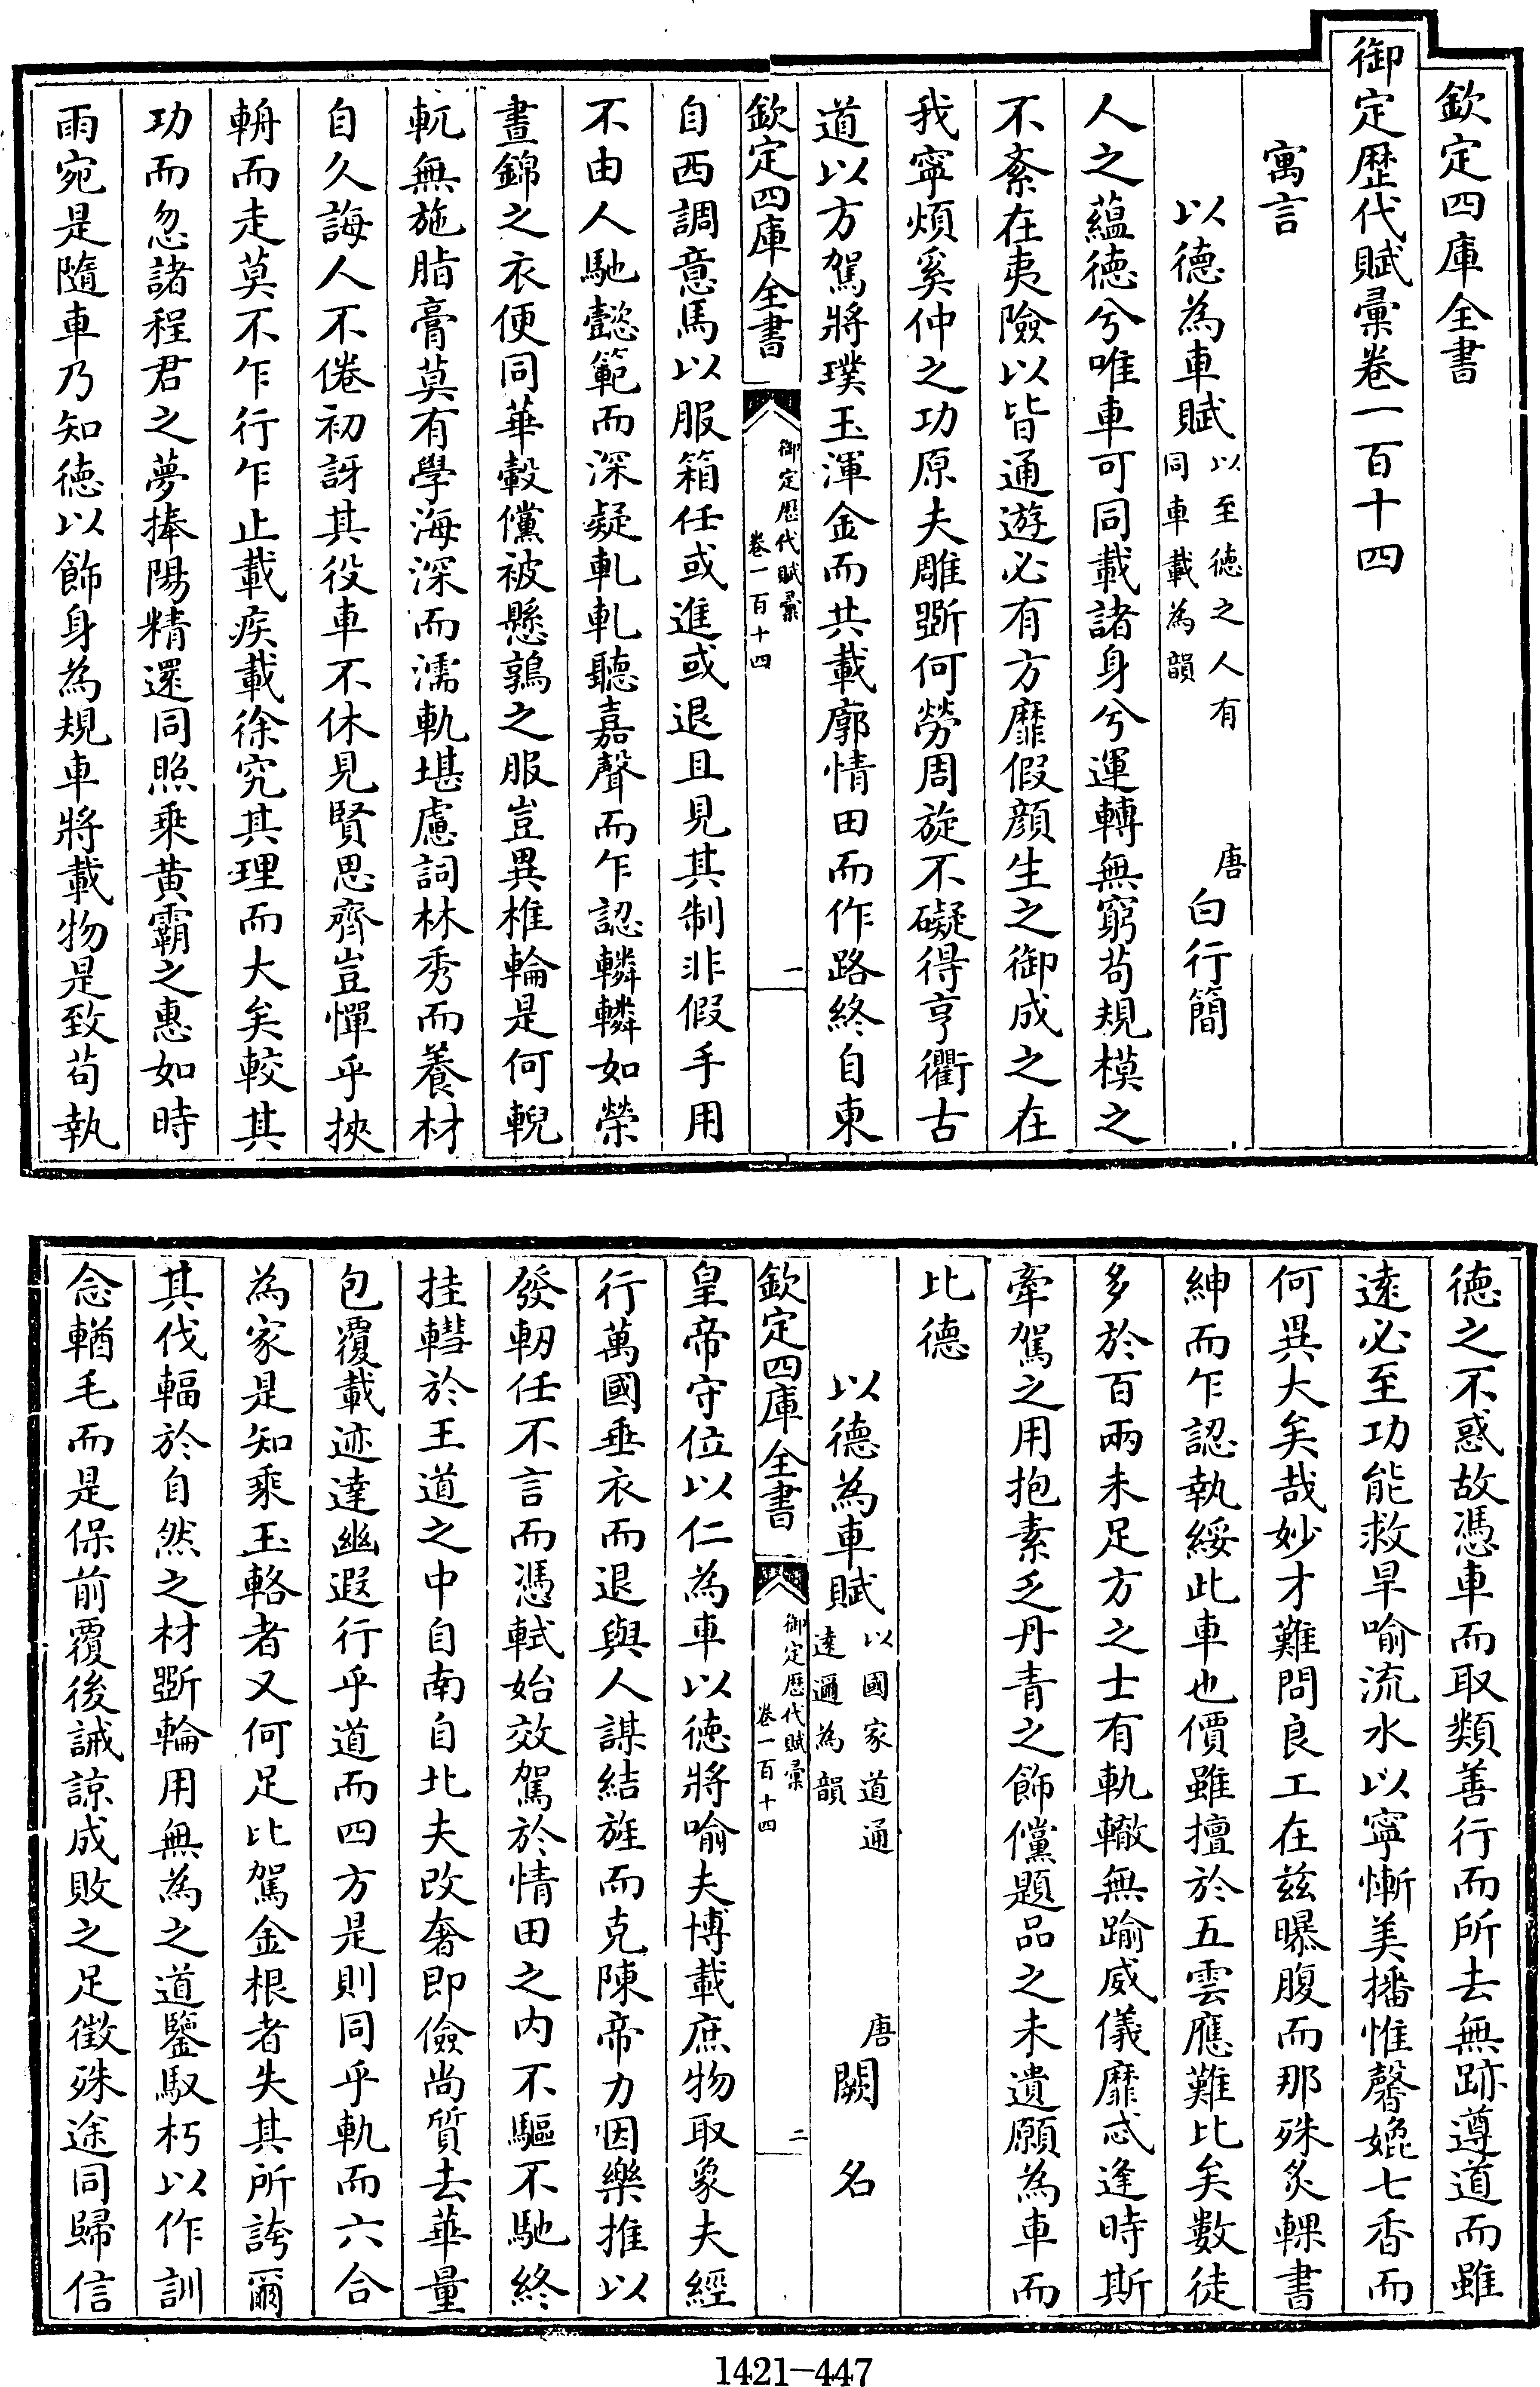 欽定四庫全書
御定歷代賦彙卷一百十四
寓言
以德為車賦以至德之人有同車載為韻 唐白行簡
人之蘊德兮唯車可同載諸身兮運轉無窮茍規模之
不紊在夷險以皆通遊必有方靡假顏生之御成之在
我寧煩奚仲之功原夫雕斵何勞周旋不礙得亨衢古
道以方駕將璞玉渾金而共載廓情田而作路終自東
欽定四庫全書
御定歷代賦彙
卷一百十四
一
自西調意馬以服箱任或進或退且見其制非假手用
不由人馳懿範而深疑軋軋聽嘉聲而乍認轔轔如榮
晝錦之衣便同華轂儻被懸鶉之服豈異椎輪是何輗
軏無施脂膏莫有學海深而濡軌堪慮詞林秀而養材
自久誨人不倦初訝其役車不休見賢思齊豈憚乎挾
輈而走莫不乍行乍止載疾載徐究其理而大矣較其
功而忽諸程君之夢捧陽精還同照乘黃霸之惠如時
雨宛是隨車乃知德以飾身為規車將載物是致茍執
德之不惑故憑車而取類善行而所去無跡遵道而雖
遠必至功能救旱喻流水以寧慚美播惟馨媲七香而
何異大矣哉妙才難問良工在兹曝腹而那殊炙輠書
紳而乍認執綏此車也價雖擅於五雲應難比矣數徒
多於百兩未足方之士有軌轍無踰威儀靡忒逢時斯
牽駕之用抱素乏丹青之飾儻題品之未遺願為車而
比德
以德為車賦以國家道通遠邇為韻 唐闕名
欽定四庫全書
御定歷代賦彙
卷一百十四
二
皇帝守位以仁為車以德將喻夫博載庶物取象夫經
行萬國垂衣而退與人謀結旌而克陳帝力因樂推以
發軔任不言而憑軾始效駕於情田之内不驅不馳終
挂轊於王道之中自南自北夫改奢即儉尚質去華量
包覆載迹達幽遐行乎道而四方是則同乎軌而六合
為家是知乘玉輅者又何足比駕金根者失其所誇爾
其伐輻於自然之材斵輪用無為之道鑒馭朽以作訓
念輶毛而是保前覆後誡諒成敗之足徵殊途同歸信
1421-447